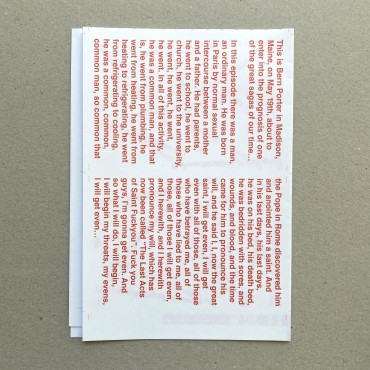 This is Bern Porter in Madison,
Maine, on May 19th, about to
enter into the prognosis of one
of the great sagas of our time…
In this episode there was a man,
an ordinary man. He was born
in Paris by normal sexual
intercourse between a mother
and a father. He had parents,
he went to school, he went to
church, he went to the university,
he went, he went, he went,
he went. In all of this activity,
he was a common man, and that
is, he went from plumbing, he
went from heating, he went from
heating to refrigerating, he went
from refrigerating to cooling,
he was a common, common,
common man, so common that
the Pope in Rome discovered him
and anointed him a saint. And
in his last days, his last days,
he was on his bed, his death bed,
he was bedridden with sores, and
wounds, and blood, and the time
came for him to pronounce his
will, and he said I, I, now the great
saint, I will get even, I will get
even with all of those, all of those
who have betrayed me, all of
those who have lied to me, all of
those, all of those I will get even,
and I herewith, and I herewith
pronounce my will, which has
now been called "The Last Acts
of Saint Fuckyou". Fuck you
guys, I'm gonna get even. And
so what I will do, I will begin,
I will begin my threats, my evens,
I will get even…